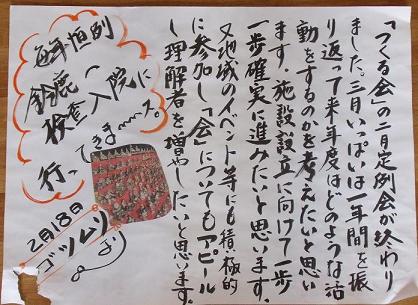 「つくる会」の二月定例会が終わり
ました。三月いっぱいは一年間を振
り返って来年度はどのような活
動をするのかを考えたいと思い
ます。施設設立に向けて一歩
一歩確実に進みたいと思います。
又地域のイベント等にも積極的
に参加し「会」についてもアピール
し理解者を増やしたいと思います。
毎年恒例
鈴鹿へ
検査入院に
行っ
てきまーす。
2月18日
ゴッツムリ
より